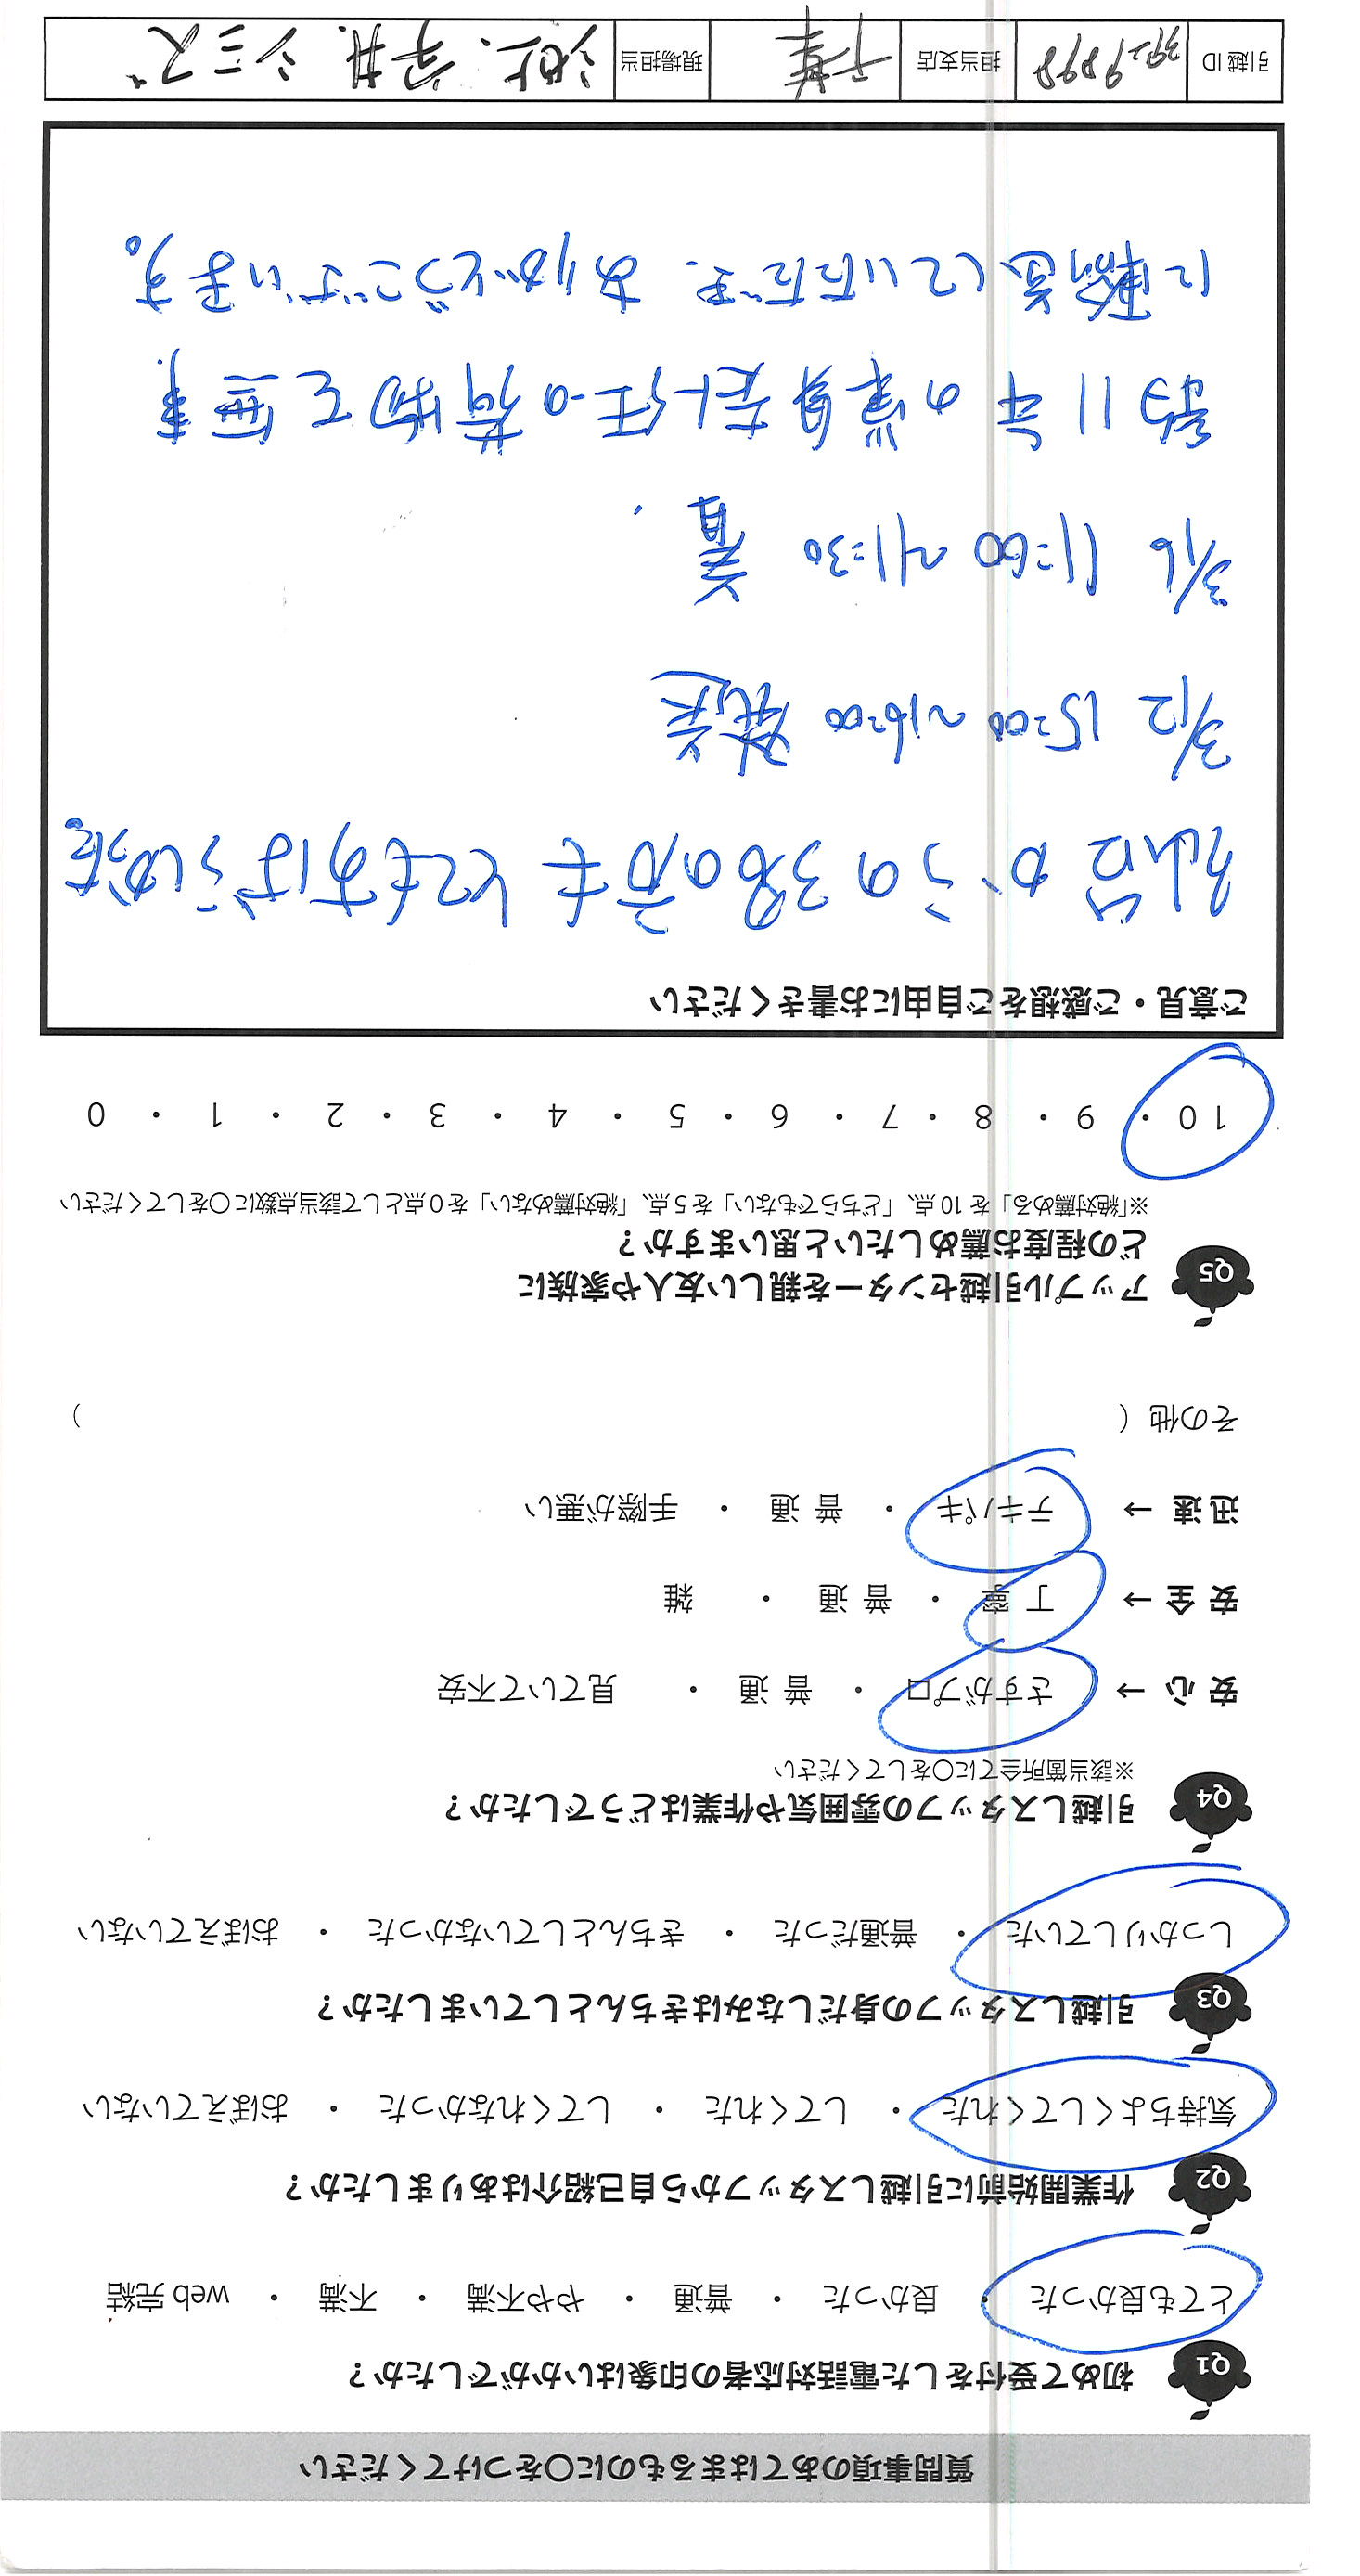 質問事項のあてはまるものに〇をつけてください
Q1 初めて受付をした電話対応者の印象はいかがでしたか？
とても良かった ・ 良かった ・ 普通 ・ やや不満 ・ 不満 ・ web 完結
Q2 作業開始前に引越しスタッフから自己紹介はありましたか？
気持ちよくしてくれた ・ してくれた ・ してくれなかった ・ おぼえていない
Q3 引越しスタッフの身だしなみはきちんとしていましたか？
しっかりしていた ・ 普通だった ・ きちんとしていなかった ・ おぼえていない
Q4 引越しスタッフの雰囲気や作業はどうでしたか？
※該当箇所全てに〇をしてください
安 心 → さすがプロ ・ 普 通 ・ 見ていて不安
安 全 → 丁 寧 ・ 普 通 ・ 雑
迅 速 → テキパキ ・ 普 通 ・ 手際が悪い
その他（ ）
Q5 アップル引越センターを親しい友人や家族に
どの程度お薦めしたいと思いますか？
※「絶対薦める」を 10 点、「どちらでもない」を 5 点、「絶対薦めない」を 0 点として該当点数に〇をしてください
10 ・ 9 ・ 8 ・ 7 ・ 6 ・ 5 ・ 4 ・ 3 ・ 2 ・ 1 ・ 0
ご意見・ご感想をご自由にお書きください
仙台からの3名の方もとてもすばらしかった。
3/12 15:00～16:00 発送
3/16 11:00～11:30 着
の単身赴任の荷物を無事
に輸送していただき、ありがとうございます。
引越 ID 3929898 担当支店 千葉 現場担当 池上、宇井、シミズ